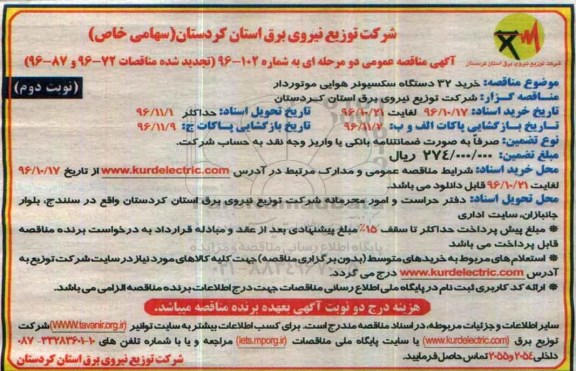 شرکت توزیع نیروی برق استان کردستان(سهامی خاص)
شرکت توزیع نیروی برق استان کردستان
آگهی مناقصه عمومی دو مرحله ای به شماره ۱۰۲-۹۶ (تجدید شده مناقصات ۷۲-۹۶ و ۸۷-۹۶)
(نوبت دوم)
موضوع مناقصه: خرید ۳۲ دستگاه سکسیونر هوایی موتوردار
مناقصه گزار: شرکت توزیع نیروی برق استان کردستان
تاریخ خرید اسناد: ۹۶/۱۰/۱۷ لغایت ۹۶/۱۰/۲۱ تاریخ تحویل اسناد: حداکثر ۹۶/۱۱/۱
تاریخ بازگشایی پاکات الف و ب: ۹۶/۱۱/۷ تاریخ بازگشایی پاکات ج: ۹۶/۱۱/۹
نوع تضمین: صرفاً به صورت ضمانتنامه بانکی یا واریز وجه نقد به حساب شرکت.
مبلغ تضمین: ۲۷۴/۰۰۰/۰۰۰ ریال
محل خرید اسناد: شرایط مناقصه عمومی و مدارک مرتبط در آدرس www.kurdelectric.com از تاریخ ۹۶/۱۰/۱۷
لغایت ۹۶/۱۰/۲۱ قابل دانلود می باشد.
محل تحویل اسناد: دفتر حراست و امور محرمانه شرکت توزیع نیروی برق استان کردستان واقع در سنندج، بلوار
جانبازان، سایت اداری
* مبلغ پیش پرداخت حداکثر تا سقف ۱۵٪ مبلغ پیشنهادی بعد از عقد و مبادله قرارداد به درخواست برنده مناقصه
قابل پرداخت می باشد
* استعلام های مربوط به خریدهای متوسط (بدون برگزاری مناقصه) جهت کلیه کالاهای مورد نیاز در سایت شرکت توزیع به
آدرس www.kurdelectric.com درج می گردد.
* ارائه کد کاربری ثبت نام در پایگاه ملی اطلاع رسانی مناقصات جهت درج اطلاعات برنده مناقصه الزامی می باشد.
هزینه درج دو نوبت آگهی بعهده برنده مناقصه میباشد.
سایر اطلاعات و جزئیات مربوطه، در اسناد مناقصه مندرج است. برای کسب اطلاعات بیشتر به سایت توانیر (WWW.tavanir.org.ir) شرکت
توزیع برق (www.kurdelectric.com) یا سایت پایگاه ملی مناقصات (iets.mporg.ir) مراجعه و یا با شماره تلفن های ۱۰-۳۳۲۸۳۶۰۱-۰۸۷
داخلی ۲۰۵۴ و ۲۰۵۵ تماس حاصل فرمایید.
شرکت توزیع نیروی برق استان کردستان